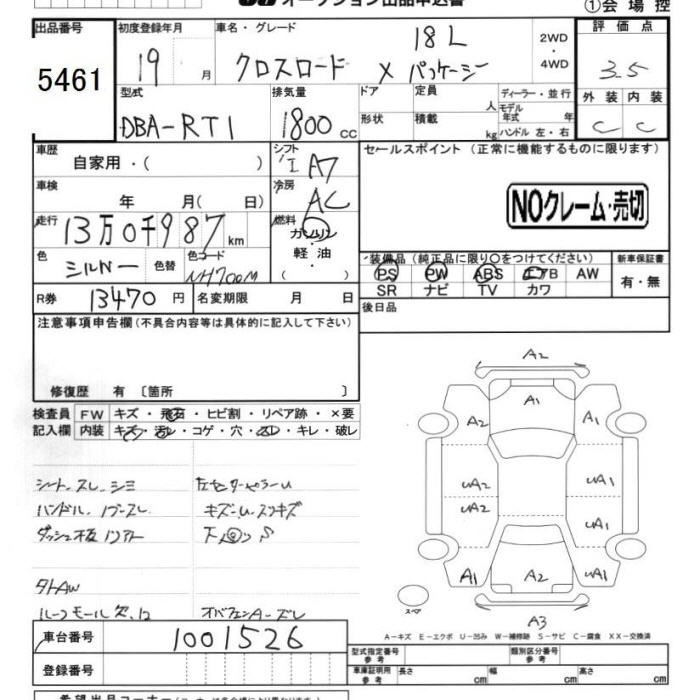 オークション出品申込書
①会場控
出品番号 初度登録年月 車名・グレード 評価点
5461
19 月 クロスロード 18L Xパッケージ 2WD・4WD 3.5
外装 内装
C C
型式 排気量 ドア 定員 人 ディーラー・並行
DBA-RT1 1800cc 形状 積載 kg モデル年式 年
ハンドル 左・右
車歴 自家用・( ) シフト I A7 セールスポイント(正常に機能するものに限ります)
車検 年 月(日) 冷房 AC
NOクレーム・売切
走行 13万0千987km 燃料 ガソリン・軽油・( )
色 シルバー 色替 色コード NH700M
装備品(純正品に限り〇をつけてください) 新車保証書
PS PW ABS エアB AW 有・無
SR ナビ TV カワ
R券 13470円 名変期限 月 日 後日品
注意事項申告欄(不具合内容等は具体的に記入して下さい)
修復歴 有〔箇所 〕
検査員 FW キズ・飛石・ヒビ割・リペア跡・×要
記入欄 内装 キズ・汚レ・コゲ・穴・スレ・キレ・破レ
シート.スレ.シミ
ハンドル.
ダッシュ板
キズ・U.スリキズ
タトAW
ルーフモール欠.
A2
A1
A2 A1
UA2 UA1
UA2 UA1
A1 A2 UA1
スペア
A3
A-キズ E-エクボ U-凹み W-補修跡 S-サビ C-腐食 XX-交換済
車台番号 1001526
登録番号
型式指定番号 参考 類別区分番号 参考
車庫証明用 参考 長さ cm 幅 cm 高さ cm
希望出品コーナー